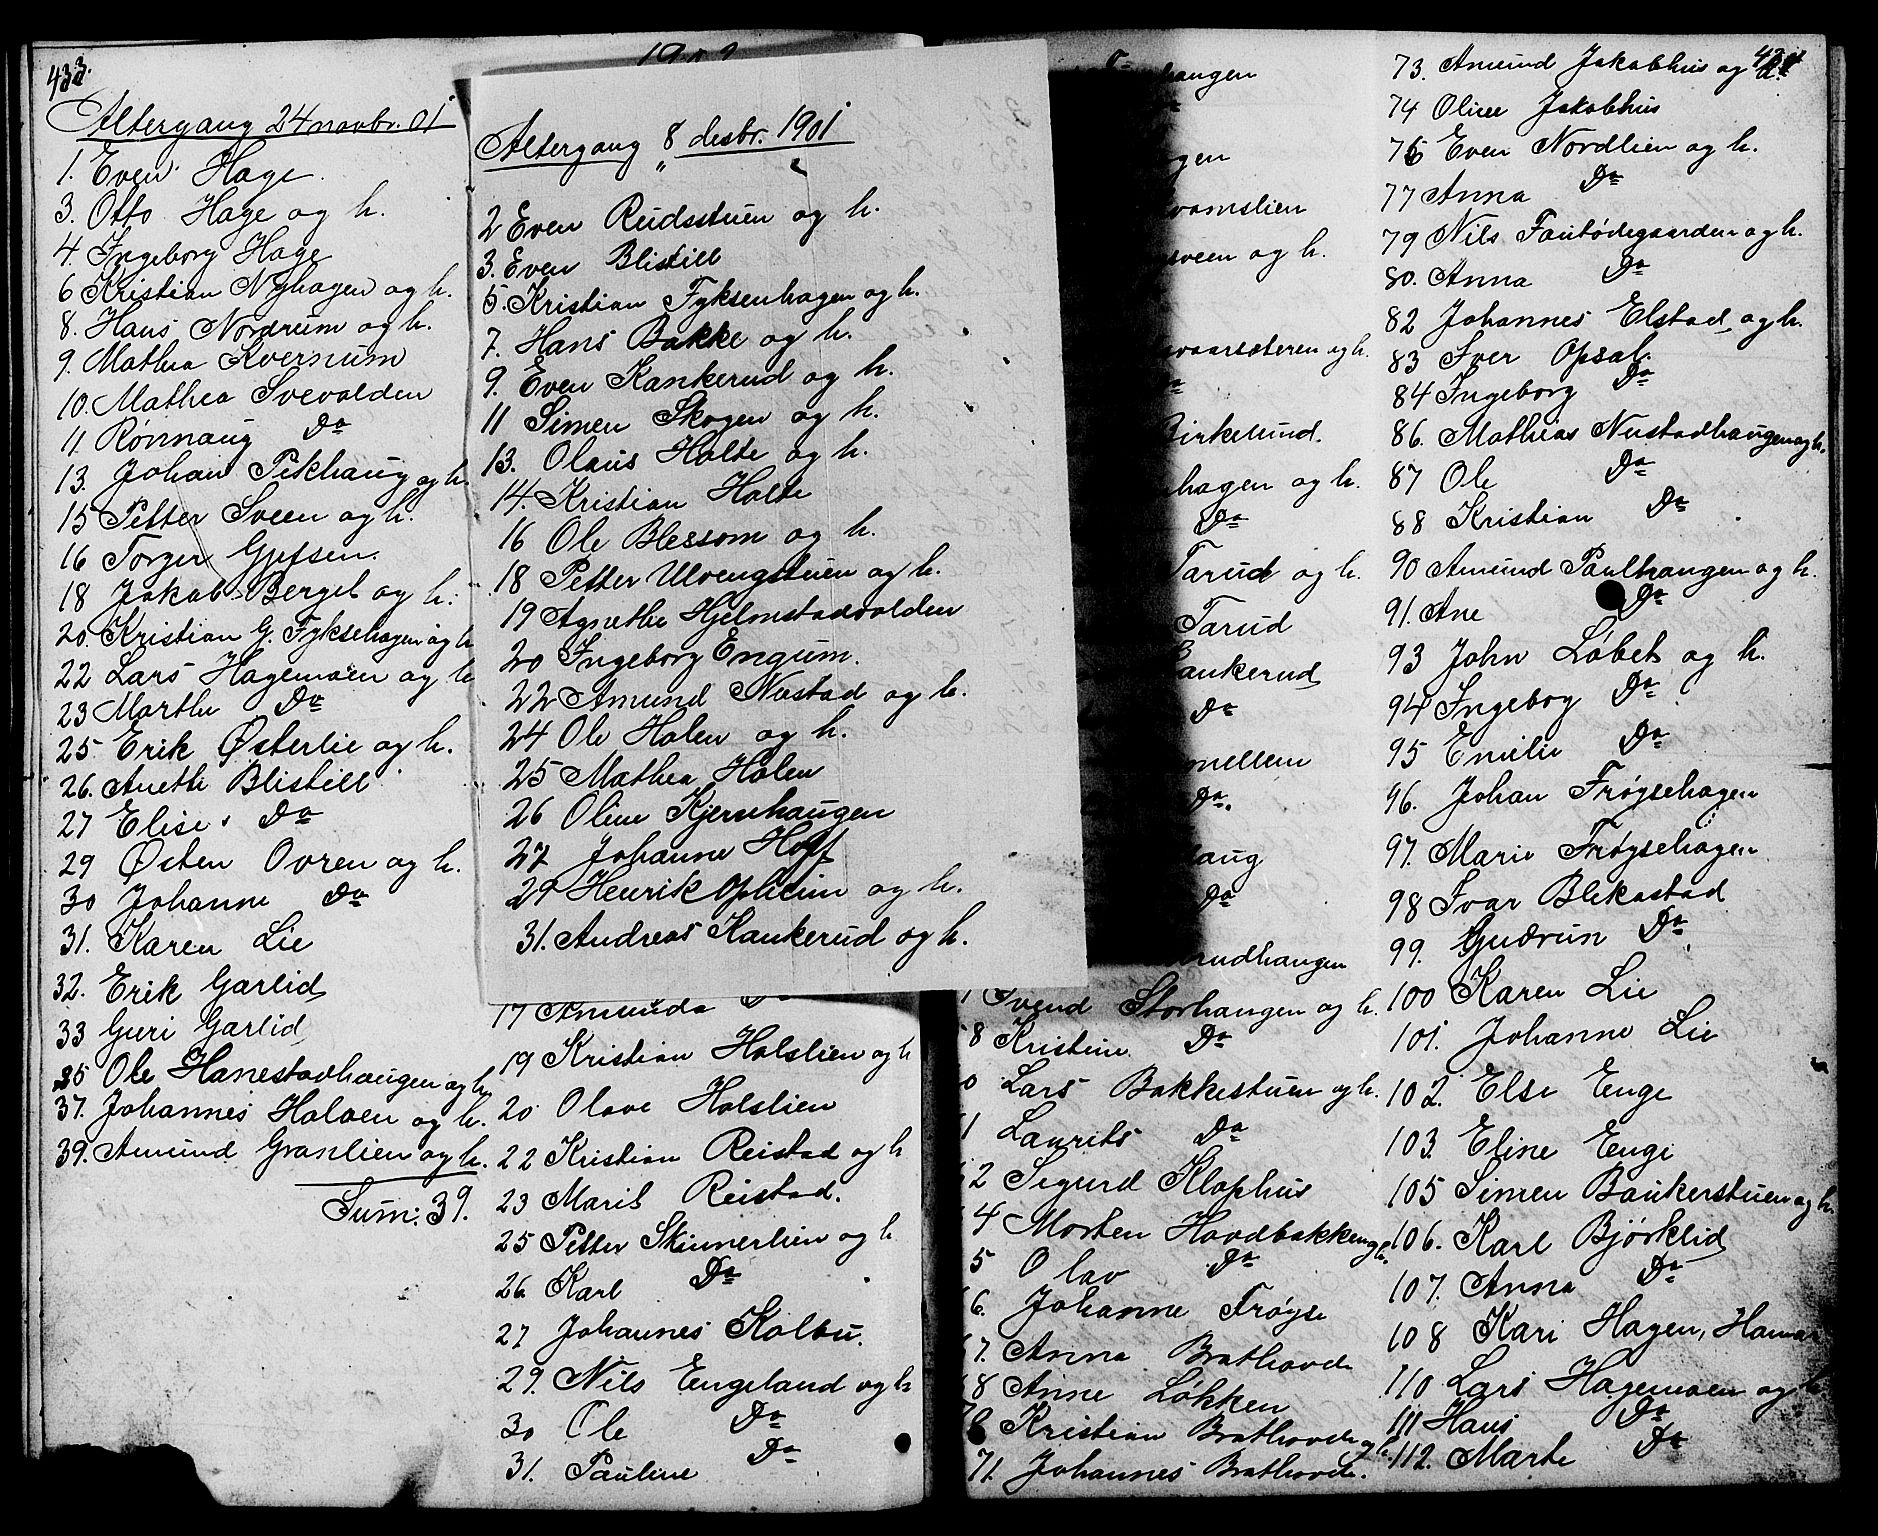 433.
Altergang 24 novbr. 01
1. Even Hage
3. Otto Hage og h.
4. Ingeborg Hage
6 Kristian Nyhagen og h.
8. Hans Nordrum og h.
9. Mathea Kvernum
10. Mathea Svevolden
11 Rønnaug Do
13. Johan Pikhaug og h.
15 Petter Sveen og h.
16 Torger Gjefsen.
18 Jakob Berget og h.
20. Kristian G. Fyksehagen og h
22 Lars Hagemoen og h
23 Marthe Do
25. Erik Østerlie og h.
26. Anette Blistill
27 Elise Do
29 Østen Ovren og h.
30 Johanne Do
31. Karen Lie
32. Erik Garlid
33 Guri Garlid
35 Ole Hanestadhaugen og h.
37. Johannes Holoen og h.
39. Amund Granlien og h.
Sum: 39.
Altergang 8 desbr. 1901
2 Even Rudsstuen og h.
3. Even Blistill
5. Kristian Fyksenhagen og h.
7. Hans Bakke og h.
9. Even Kankerud og h.
11 Simen Skogen og h.
13. Olaus Holte og h.
14. Kristian Holte
16 Ole Blessom og h.
18 Petter Ulvengstuen og h.
19 Agnethe Hjelmstadvolden
20 Ingeborg Engum.
22 Amund Nustad og h.
24 Ole Holen og h.
25 Mathea Holen
26 Oline Kjernhaugen
27 Johanne Hoff
29 Henrik Opheim og h.
31. Andreas Kankerud og h.
17 Amunda Do
19 Kristian Holslien og h
20 Olave Holslien
22 Kristian Reistad og h
23 Marit Reistad.
25 Petter Skinnerlien og h
26 Karl Do
27 Johannes Kolbu.
29. Nils Engeland og h
30 Ole Do
31. Pauline Do
haugen
gen
vomslien
sveen og h.
vaarseteren og h.
Birkelund.
nhagen og h.
Do
Tarud og h.
Tarud
Kankerud
Do
mellem
Do.
haug
Do
rudhaugen
Svend Storhaugen og h.
8 Kristine. Do
0 Lars Bakkestuen og h.
1 Laurits Do
2 Sigurd Klophus
4 Morten Hovdbakken og h.
5 Olav Do
6. Johanne Frøyse
7. Anna Brathovde
8 Anne Løkken
Kristian Brathovde og h
71. Johannes Brathovde.
73. Amund Jakobhus og h.
74 Oline Jakobhus
76 Even Nordlien og h.
77 Anna Do
79 Nils Fautødegaarden og h.
80. Anna Do
82 Johannes Elstad og h.
83 Iver Opsal.
84 Ingeborg Do
86. Mathias Nustadhaugen og h.
87 Ole Do
88 Kristian Do
90 Amund Paulhaugen og h.
91. Ane Do
93 John Løbet og h.
94 Ingebog Do
95 Emilie Do
96. Johan Frøysehagen
97. Marie Frøysehagen
98 Ivar Blekastad
99. Gudrun Do
100 Karen Lie
101. Johanne Lie
102. Else Enge
103. Eline Enge
105 Simen Baukerstuen og h.
106. Karl Bjørklid
107. Anna Do
108 Kari Hagen, Hamar
110 Lars Hagemoen og h.
111 Hans Do
112. Marte Do